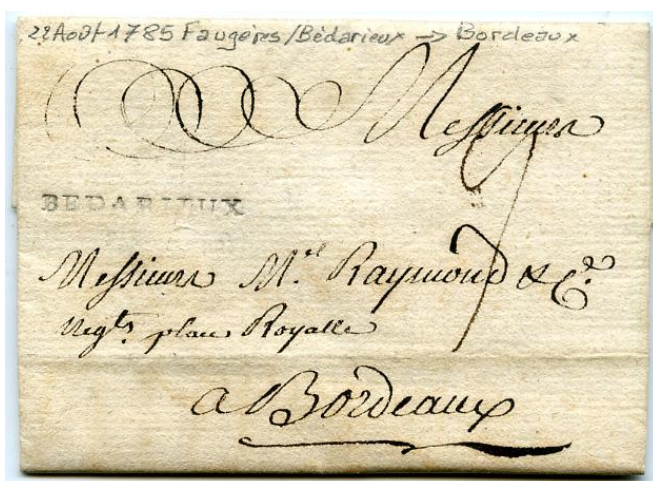 22 Août 1785 Faugères/Bédarieux → Bordeaux
Messieurs
BEDARIEUX
Messieurs Mel. Raymond & Ce.
Negts. place Royalle
a Bordeaux